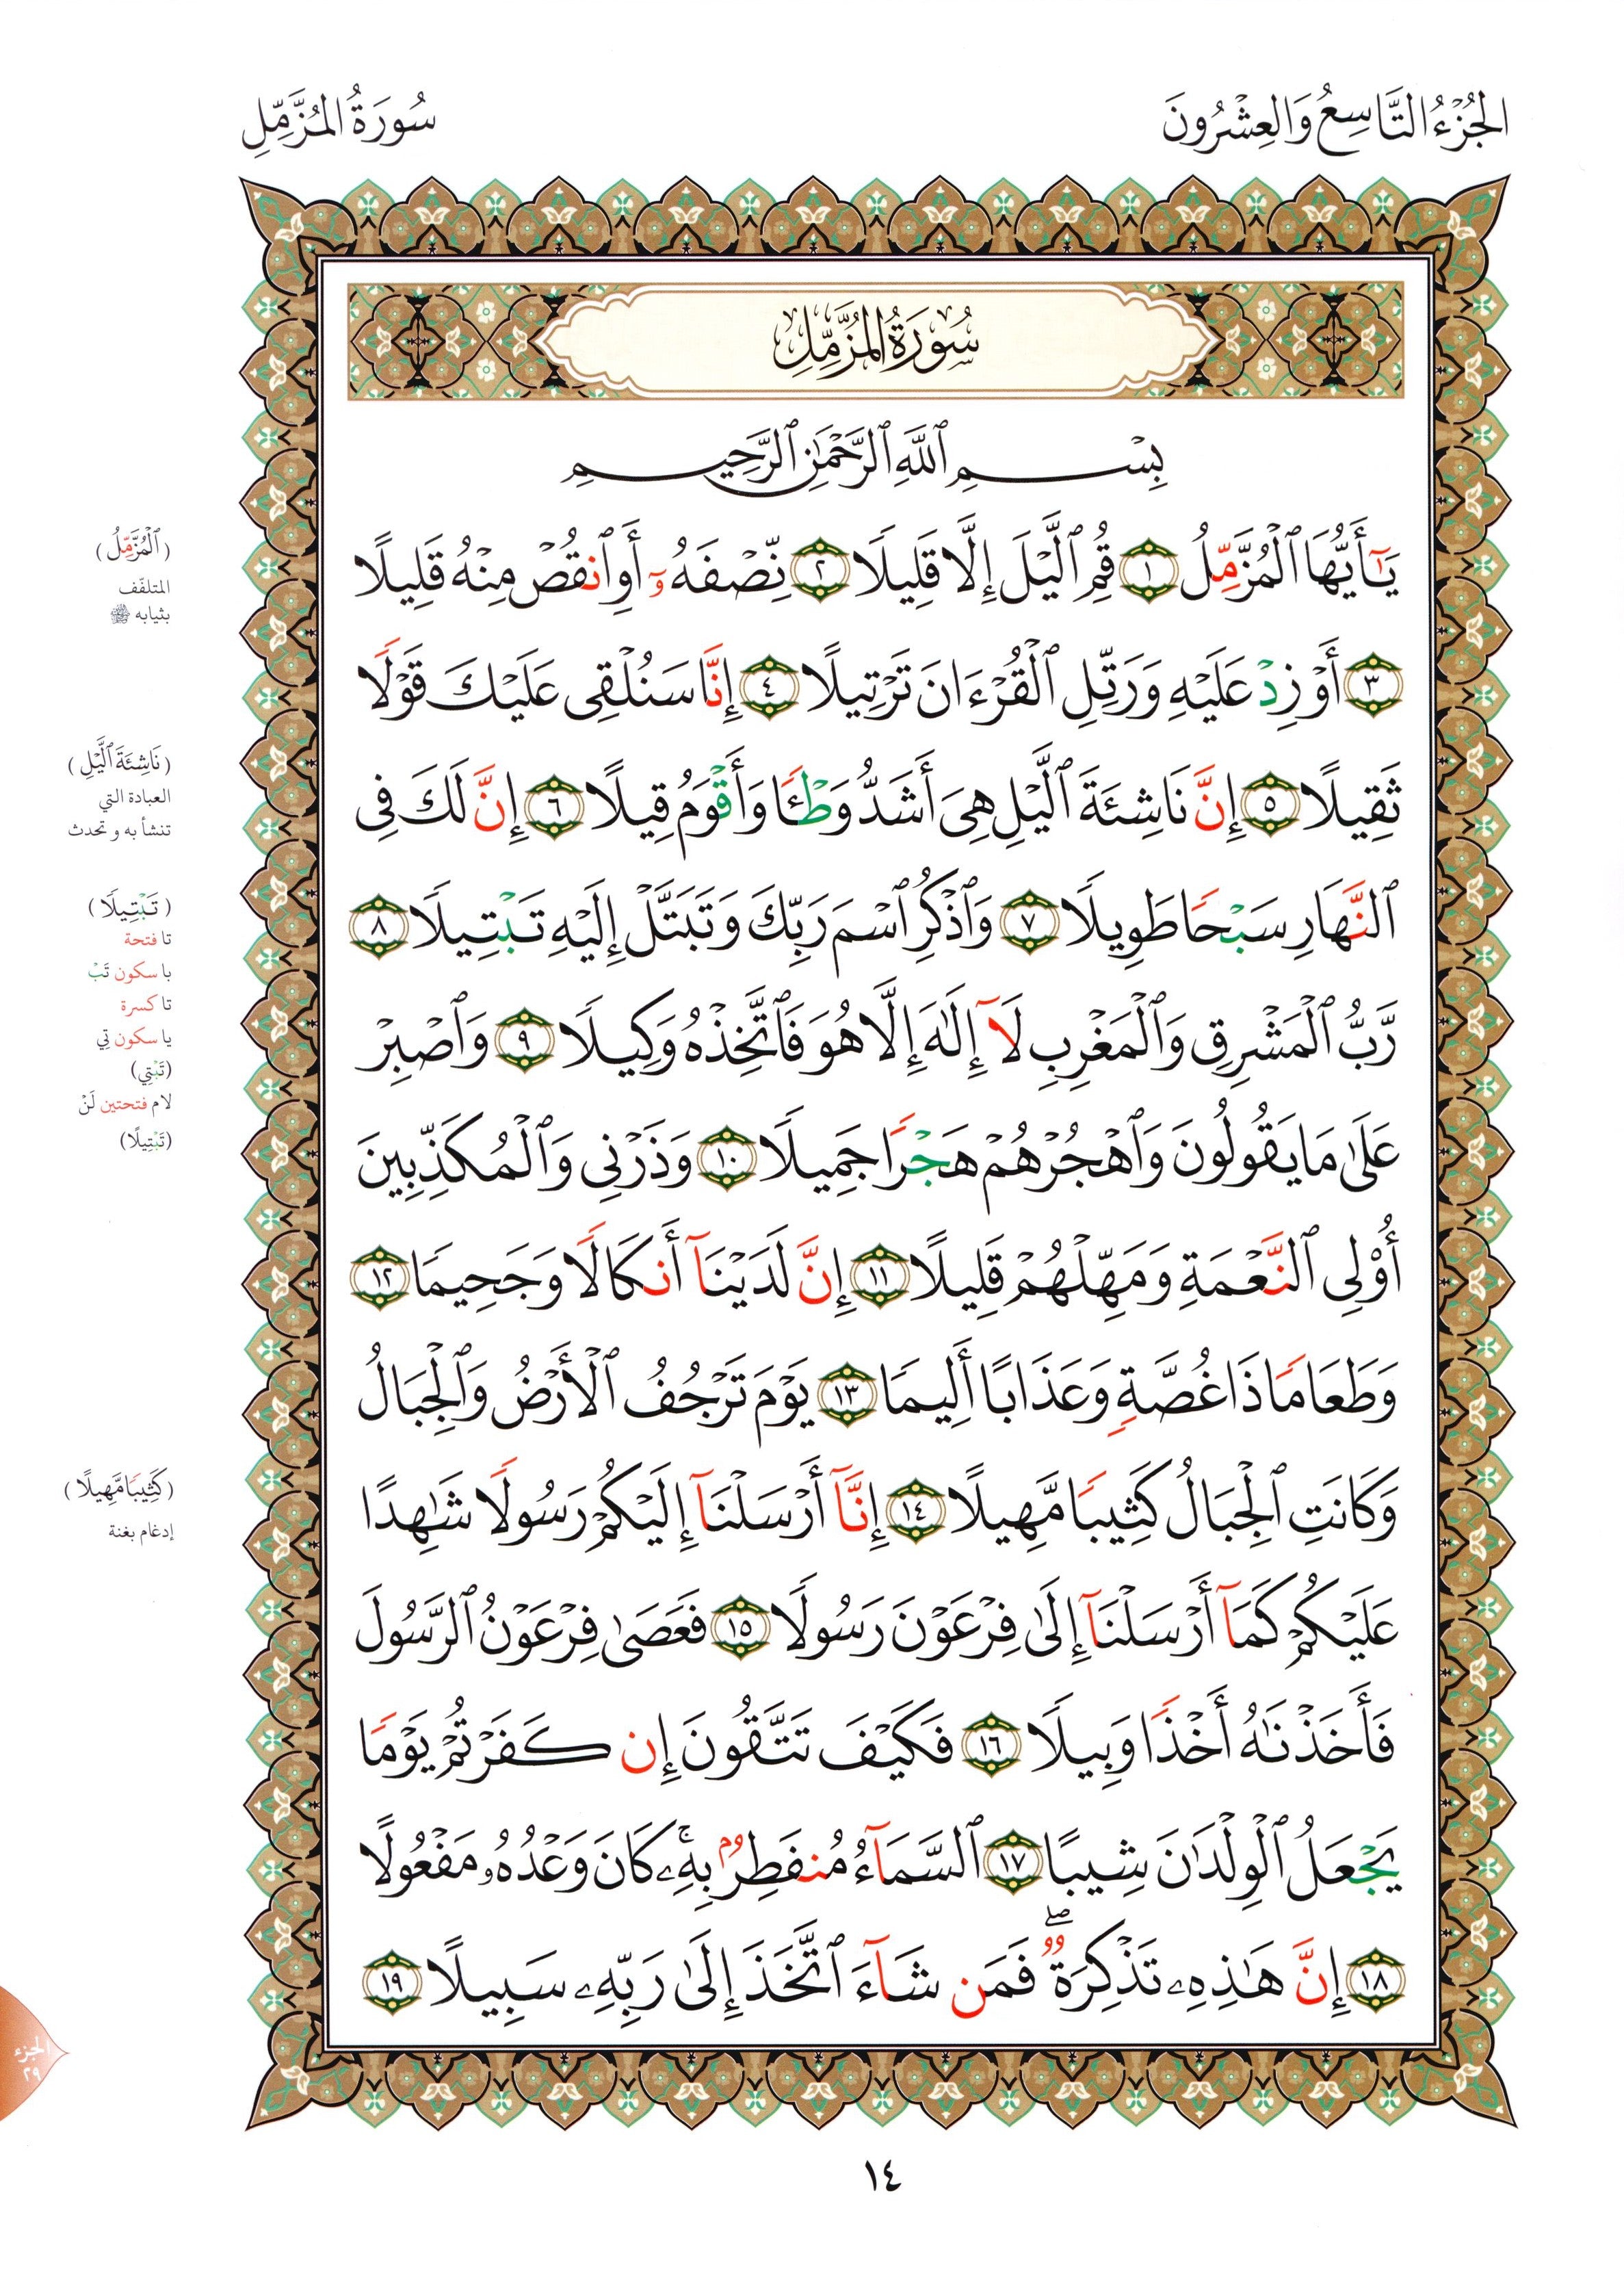 الجُزْءُ التَّاسِعُ وَالعِشْرُونَ
سُورَةُ المُزَّمِّلِ
سُورَةُ المُزَّمِّلِ
بِسْمِ ٱللَّهِ ٱلرَّحْمَٰنِ ٱلرَّحِيمِ
يَٰٓأَيُّهَا ٱلْمُزَّمِّلُ ١ قُمِ ٱلَّيْلَ إِلَّا قَلِيلًا ٢ نِّصْفَهُۥٓ أَوِ ٱنقُصْ مِنْهُ قَلِيلًا
٣ أَوْ زِدْ عَلَيْهِ وَرَتِّلِ ٱلْقُرْءَانَ تَرْتِيلًا ٤ إِنَّا سَنُلْقِى عَلَيْكَ قَوْلًا
ثَقِيلًا ٥ إِنَّ نَاشِئَةَ ٱلَّيْلِ هِىَ أَشَدُّ وَطْـًٔا وَأَقْوَمُ قِيلًا ٦ إِنَّ لَكَ فِى
ٱلنَّهَارِ سَبْحًا طَوِيلًا ٧ وَٱذْكُرِ ٱسْمَ رَبِّكَ وَتَبَتَّلْ إِلَيْهِ تَبْتِيلًا ٨
رَّبُّ ٱلْمَشْرِقِ وَٱلْمَغْرِبِ لَآ إِلَٰهَ إِلَّا هُوَ فَٱتَّخِذْهُ وَكِيلًا ٩ وَٱصْبِرْ
عَلَىٰ مَا يَقُولُونَ وَٱهْجُرْهُمْ هَجْرًا جَمِيلًا ١٠ وَذَرْنِى وَٱلْمُكَذِّبِينَ
أُو۟لِى ٱلنَّعْمَةِ وَمَهِّلْهُمْ قَلِيلًا ١١ إِنَّ لَدَيْنَآ أَنكَالًا وَجَحِيمًا ١٢
وَطَعَامًا ذَا غُصَّةٍ وَعَذَابًا أَلِيمًا ١٣ يَوْمَ تَرْجُفُ ٱلْأَرْضُ وَٱلْجِبَالُ
وَكَانَتِ ٱلْجِبَالُ كَثِيبًا مَّهِيلًا ١٤ إِنَّآ أَرْسَلْنَآ إِلَيْكُمْ رَسُولًا شَٰهِدًا
عَلَيْكُمْ كَمَآ أَرْسَلْنَآ إِلَىٰ فِرْعَوْنَ رَسُولًا ١٥ فَعَصَىٰ فِرْعَوْنُ ٱلرَّسُولَ
فَأَخَذْنَٰهُ أَخْذًا وَبِيلًا ١٦ فَكَيْفَ تَتَّقُونَ إِن كَفَرْتُمْ يَوْمًا
يَجْعَلُ ٱلْوِلْدَٰنَ شِيبًا ١٧ ٱلسَّمَآءُ مُنفَطِرٌۢ بِهِۦ ۚ كَانَ وَعْدُهُۥ مَفْعُولًا
١٨ إِنَّ هَٰذِهِۦ تَذْكِرَةٌ ۖ فَمَن شَآءَ ٱتَّخَذَ إِلَىٰ رَبِّهِۦ سَبِيلًا ١٩
(ٱلْمُزَّمِّلُ)
المتلفّف
بثيابه ﷺ
(نَاشِئَةَ ٱلَّيْلِ)
العبادة التي
تنشأ به و تحدث
(تَبْتِيلًا)
تا فتحة
با سكون تَبْ
تا كسرة
يا سكون تِي
(تَبْتِي)
لام فتحتين لَنْ
(تَبْتِيلًا)
(كَثِيبًا مَّهِيلًا)
إدغام بغنة
الجزء
٢٩
١٤